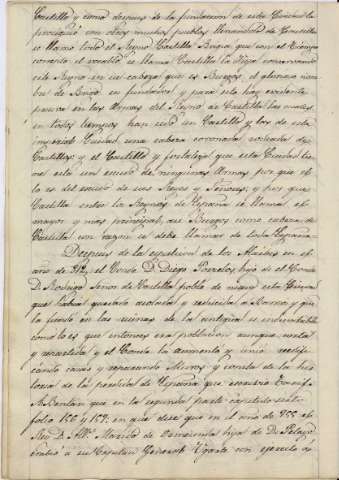 Castilla y como despues de la fundacion de esta Ciudad la
con otros muchos pueblos
se llamo todo el Reyno Castilla Burgia que con el tiempo
el vocablo se llama Castilla la Vieja conservando
este Reyno en su cabeza que es Burgos, el glorioso nom
bre de Brigo su fundador y para esto hay evidente
prueva en las Armas del Reyno de Castilla las cuales
en todos tiempos han sido un Castillo y las de esta
imperial Ciudad una cabeza coronada rodeada de
Castillos y el Castillo y fortaleza que esta Ciudad tie
ne esta sin escudo de ningunas Armas por que el
lo es del escudo de sus Reyes y Señores, y pues que
Castilla entre los Reynos de España se llama el
mayor y mas principal, asi Burgos como cabeza de
Castilla con razon se debe llamar de toda España.
Despues de la de los en el
año de el Conde D. Diego Porcelos, hijo del Conde
D. Rodrigo Señor de Castilla poblo de nuevo esta Ciudad
que habia quedado asolada y reducida a Barrios, y que
la fundó en las ruinas de la antigua es indubitable
como lo es que entonces era poblacion aunque corta
y el Conde la aumentó y unió reedifi
cando casas y reparando Muros y consta de la his
toria de la perdida de España que
que en la segunda parte capitulo
folio 156 y 157. en que dise que en el año de 755 el
Rey D. Marido de Ormisinda hija de D. Pelayo
embió a su Capitan General con ejercito á